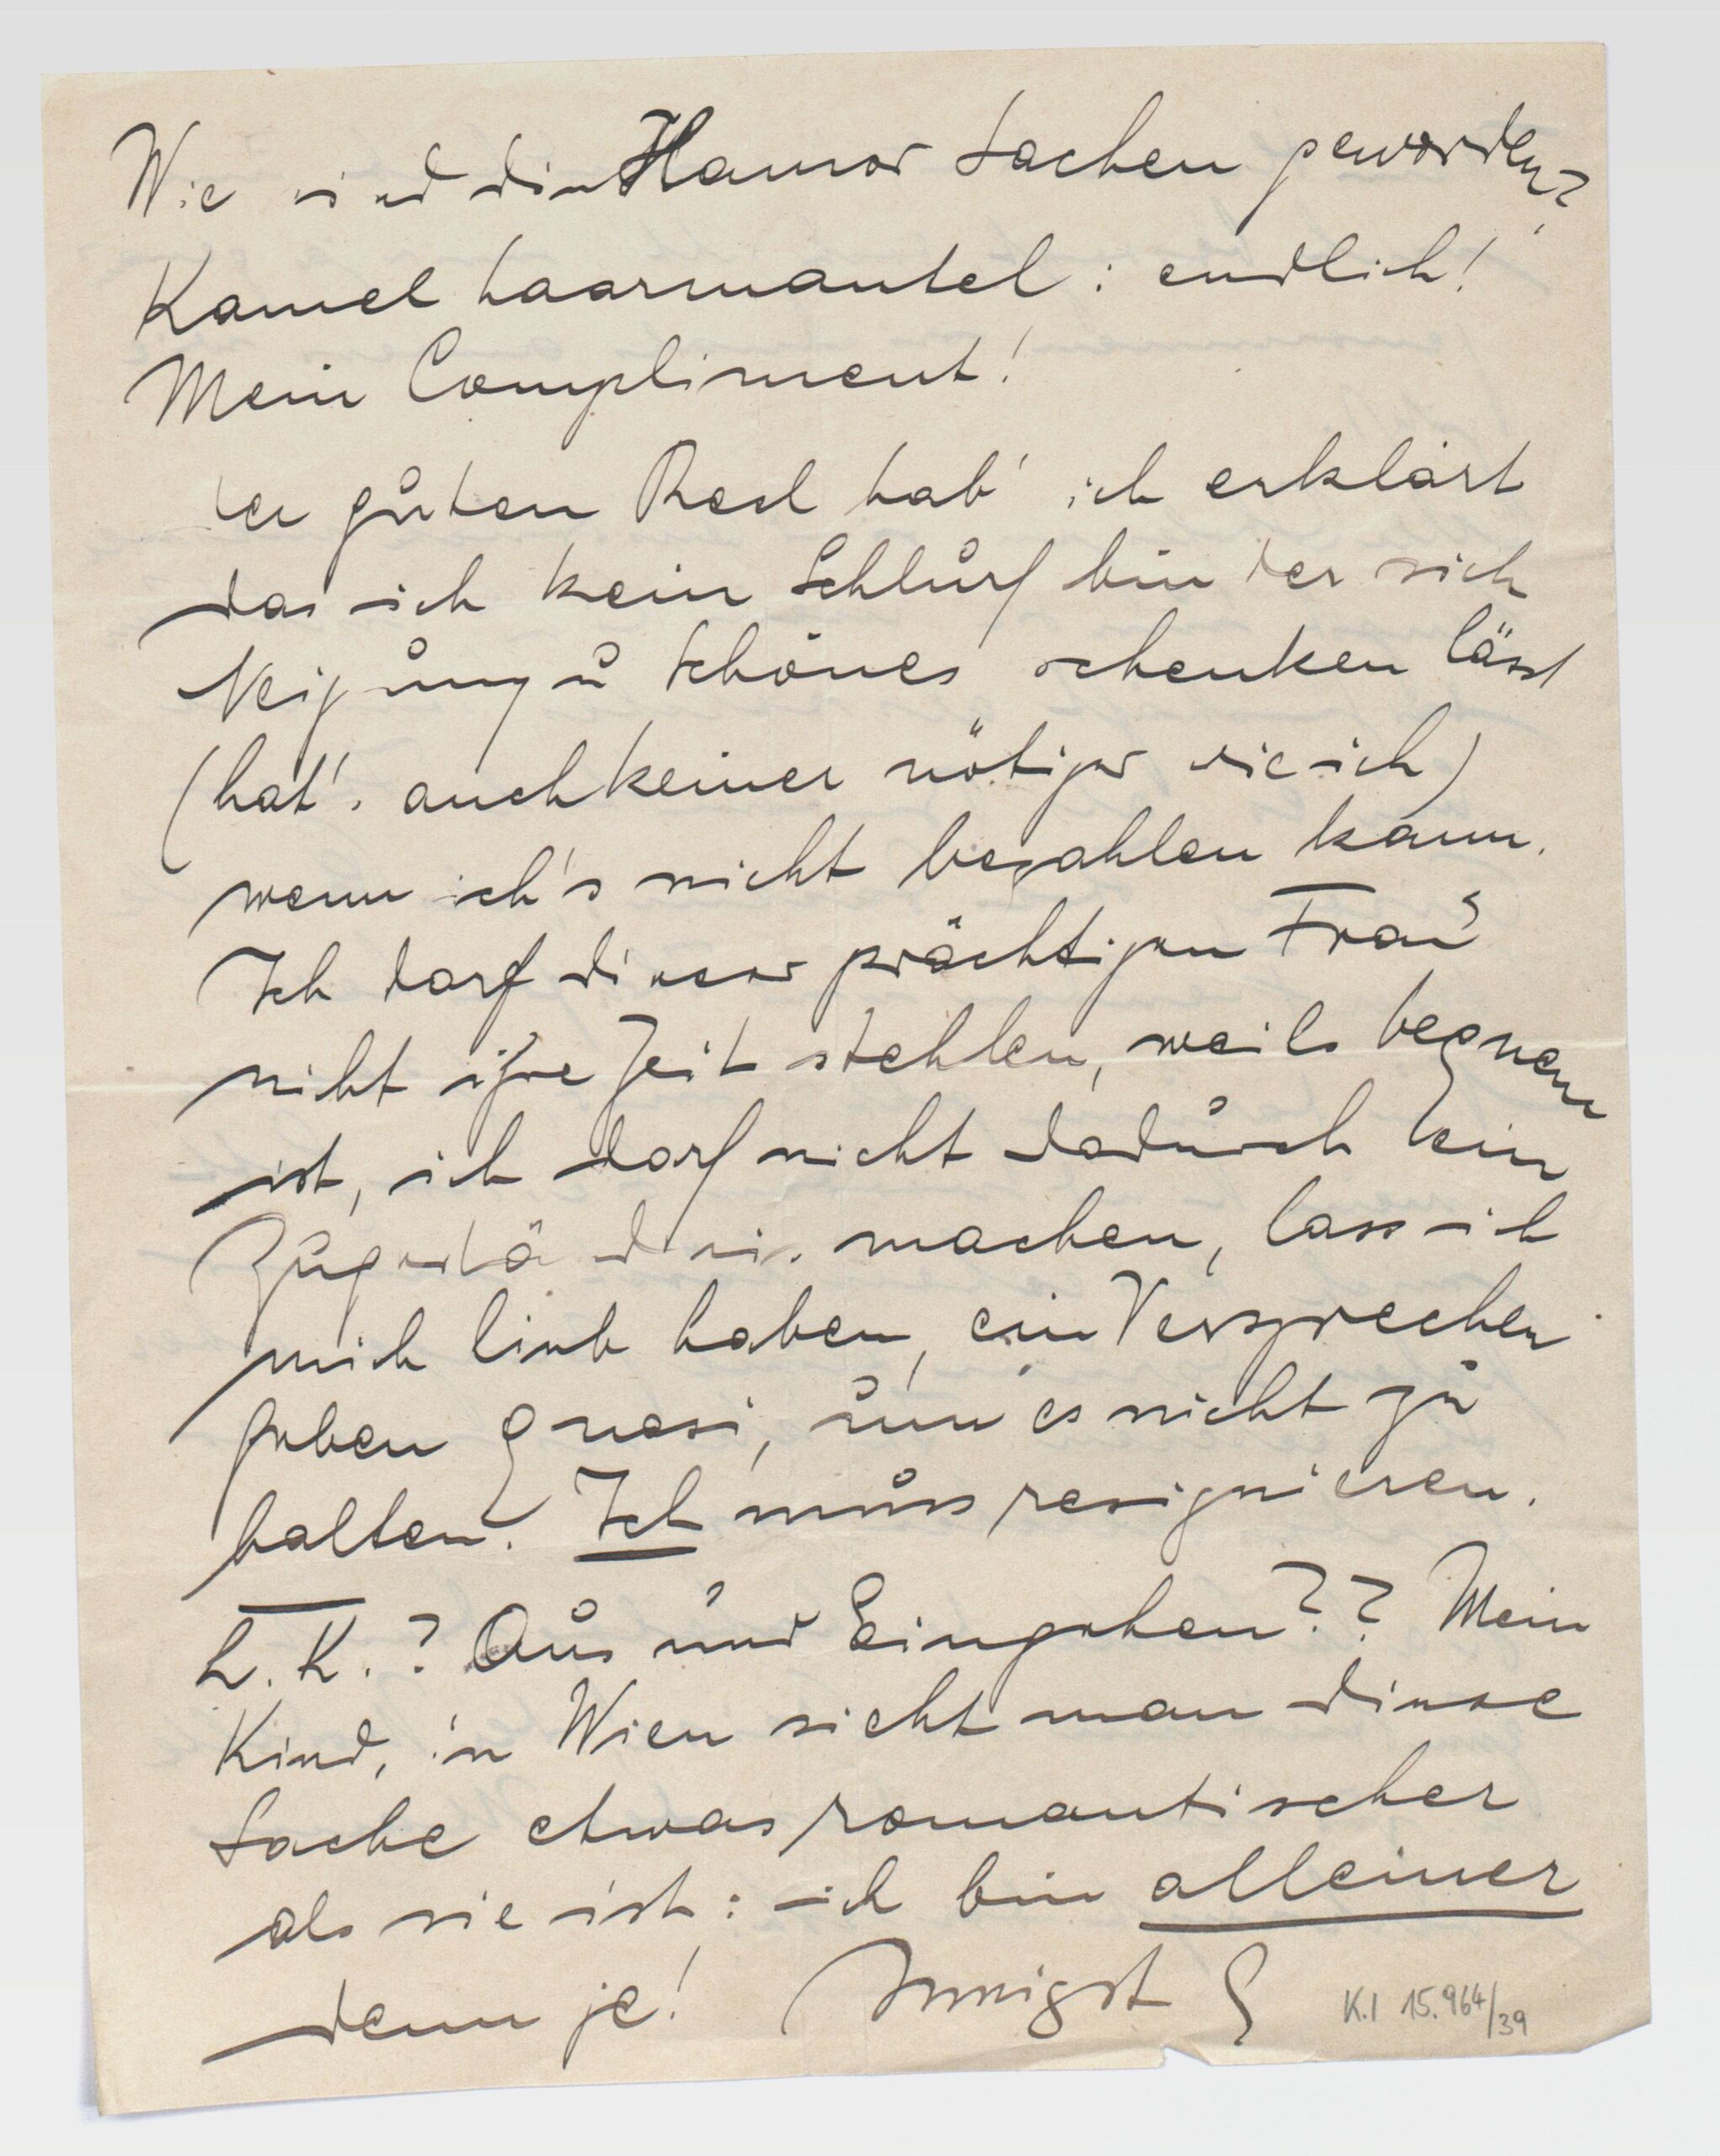 Wie sind die Hamor Sachen geworden?
Kamelhaarmantel: endlich!
Mein Compliment!
Der guten Resl hab' ich erklärt
das ich kein Schlurf bin der sich
Neigung u Schönes schenken lässt
(hat's auch keiner nötiger wie ich)
wenn ich's nicht bezahlen kann.
Ich darf dieser prächtigen Frau
nicht ihre Zeit stehlen, weils bequem
ist, ich darf nicht dadurch kein
Zugeständnis machen, lass ich
mich lieb haben, ein Versprechen
geben quasi, um es nicht zu
halten. Ich muss resignieren.
L. K.? Aus und Eingehen?? Mein
Kind, in Wien sieht man diese
Sache etwas romantischer
als sie ist: ich bin alleiner
denn je! Innigst
K.I 15.964/39